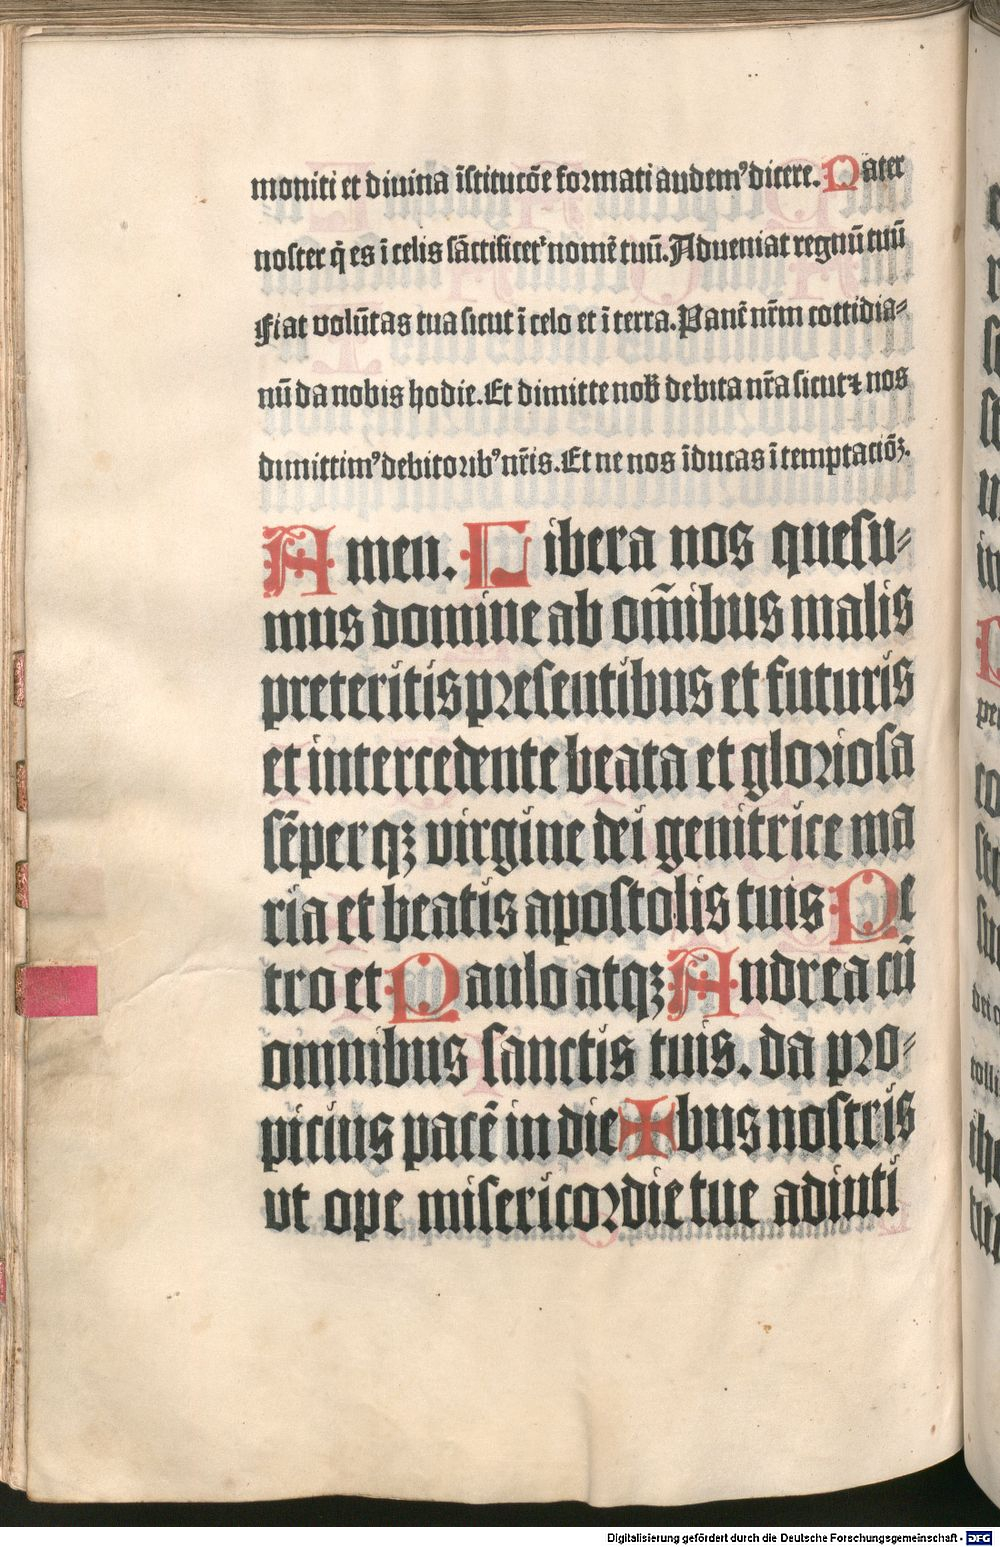 moniti et diuina īstitucōe formati audemꝰ dicere. Pater
noster q̄ es ī celis sāctificetᷣ nomē tuū. Adueniat regnū tuū
Fiat volūtas tua sicut ī celo et ī terra. Panē nr̄m cottidia⸗
nū da nobis hodie. Et dimitte nob̄ debita nr̄a sicut ⁊ nos
dimittimꝰ debitoribꝰ nr̄is. Et ne nos īducas ī temptacōꝫ.
Amen. Libera nos quesu⸗
mus domine ab om̄ibus malis
preteritis presentibus et futuris
et intercedente beata et gloriosa
sēperqꝫ virgine dei genitrice ma
ria et beatis apostolis tuis Pe
tro et Paulo atqꝫ Andrea cū
omnibus sanctis tuis. da pro⸗
picius pacē in die✠bus nostris
vt ope misericordie tue adiuti
Digitalisierung gefördert durch die Deutsche Forschungsgemeinschaft - DFG